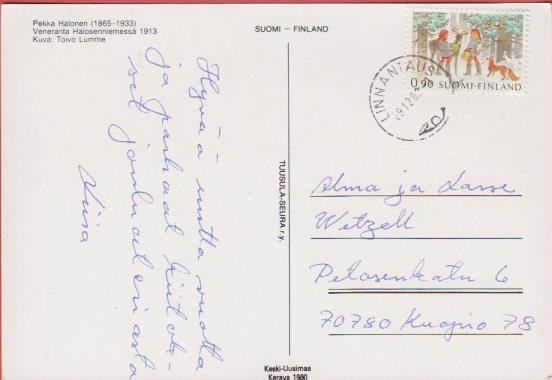 Pekka Halonen (1865-1933)
Veneranta Halosenniemessä 1913
Kuva: Toivo Lumme
SUOMI - FINLAND
0,90 SUOMI-FINLAND
LINNANTAUS
29.12.8
Hyvää uutta vuotta
ja parhaat kiitok-
set jouluateriasta
Liisa
TUUSULA-SEURA r.y.
Alma ja Lasse
Wetzell
Petosenkatu 6
70780 Kuopio 78
Keski-Uusimaa
Kerava 1980